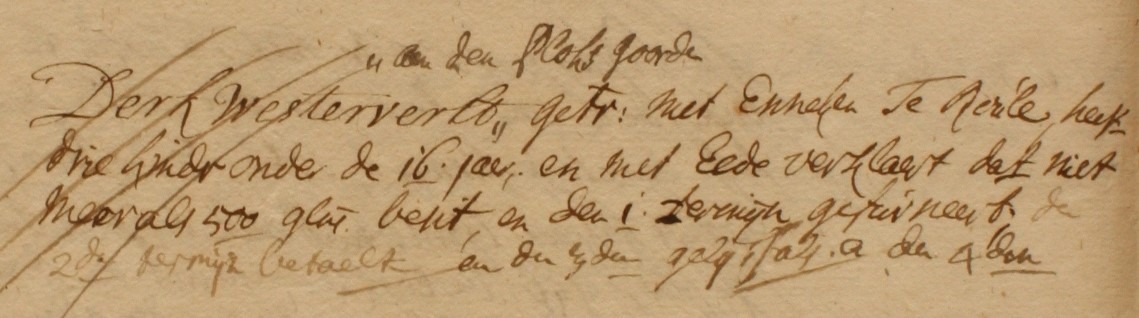 ,, aen den plohs goorden
Derk Westervelt,, getr: met Enneken Te Reile, heeft
drie kinder onder de 16. jaer. en met Eede verklaert dat niet
meer als 500 gls. besit, en den 1. termijn gefurneert. de
2de termijn betaelt en den 3den den 4den